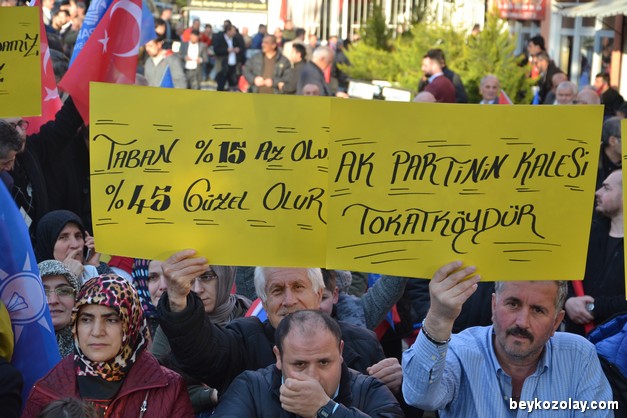 TABAN %15 AZ OLUR
%45 GÜZEL OLUR
AK PARTİNİN KALESİ
TOKATKÖYDÜR
beykozolay.com